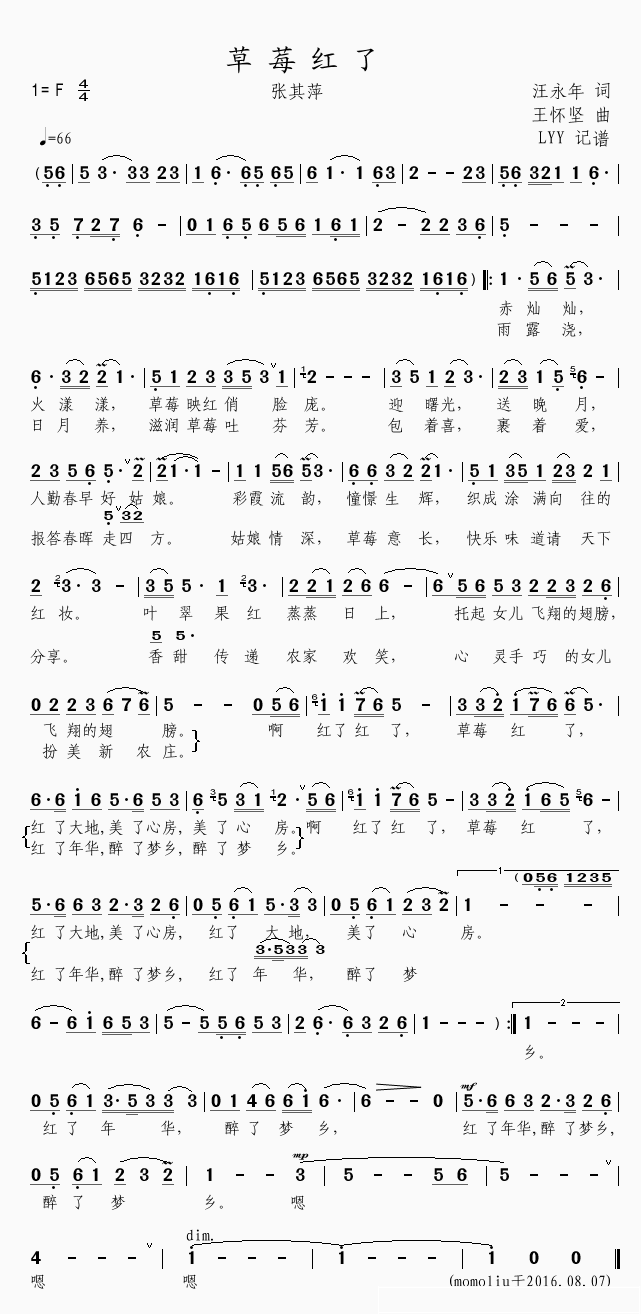 草莓红了
1=F 4/4 张其萍 汪永年 词
王怀坚 曲
♩=66 LYY 记谱
(56 | 5 3· 33 23 | 1 6· 65 65 | 6 1· 1 63 | 2 - - 23 | 56 321 1 6· |
35 727 6 - | 01 65 656 161 | 2 - 22 36 | 5 - - - |
5123 6565 3232 1616 | 5123 6565 3232 1616 ) ‖: 1 · 56 5 3· |
赤 灿 灿,
雨 露 浇,
6 · 32 2 1· | 51 23 353 1 | 2 - - - | 35 12 3· | 23 15 6· - |
火 漾 漾, 草莓 映红 俏 脸 庞。 迎 曙光, 送 晚 月,
日 月 养, 滋润 草莓 吐 芬 芳。 包 着喜, 裹 着 爱,
23 56 5· 2 | 21·1 - | 11 56 53· | 66 32 21· | 51 351 23 21 |
人勤春早 好 姑 娘。 彩霞 流 韵, 憧憬 生 辉, 织成 涂 满向 往的
5 32
报答春晖 走四 方。 姑娘 情 深, 草莓 意 长, 快乐 味 道请 天下
2 3· 3 - | 35 5· 1 3· | 221 26 6 - | 6 56 53 223 26 |
红 妆。 叶 翠 果 红 蒸蒸 日 上, 托起 女儿 飞翔的翅膀,
5 5·
分享。 香 甜 传 递 农家 欢 笑, 心 灵手 巧 的女儿
02 23 676 | 5 - - 056 | 1 1 76 5 - | 332 176 65· |
飞 翔的翅 膀。 啊 红了 红 了, 草莓 红 了,
扮 美 新 农 庄。
6·6 16 5·6 53 | 6 5 31 2 · 56 | 1 1 76 5 - | 332 165 6 - |
红 了大地, 美 了心房, 美 了 心 房。啊 红了 红 了, 草莓 红 了,
红 了年华, 醉 了梦乡, 醉 了 梦 乡。
1 (056 1235
5·6 63 2·3 26 | 05 61 5·3 3 | 05 61 232 | 1 - - - |
红 了大地, 美 了心房, 红了 大 地, 美了 心 房。
3·533 3
红 了年华, 醉 了梦乡, 红了 年 华, 醉了 梦
6 - 61 653 | 5 - 556 53 | 26· 63 26 | 1 - - - ) :‖ 2 1 - - - |
乡。
05 61 3·53 3 3 | 01 46 61 6· | 6 - - 0 | mf 5·6 63 2·3 26 |
红 了 年 华, 醉 了 梦 乡, 红 了年华, 醉 了梦乡,
05 61 232 | 1 - - mp 3 | 5 - - 56 | 5 - - - |
醉 了 梦 乡。 嗯
4 - - - | dim. 1 - - - | 1 - - - | 1 0 0 ‖
嗯 嗯 (momoliu于2016.08.07)